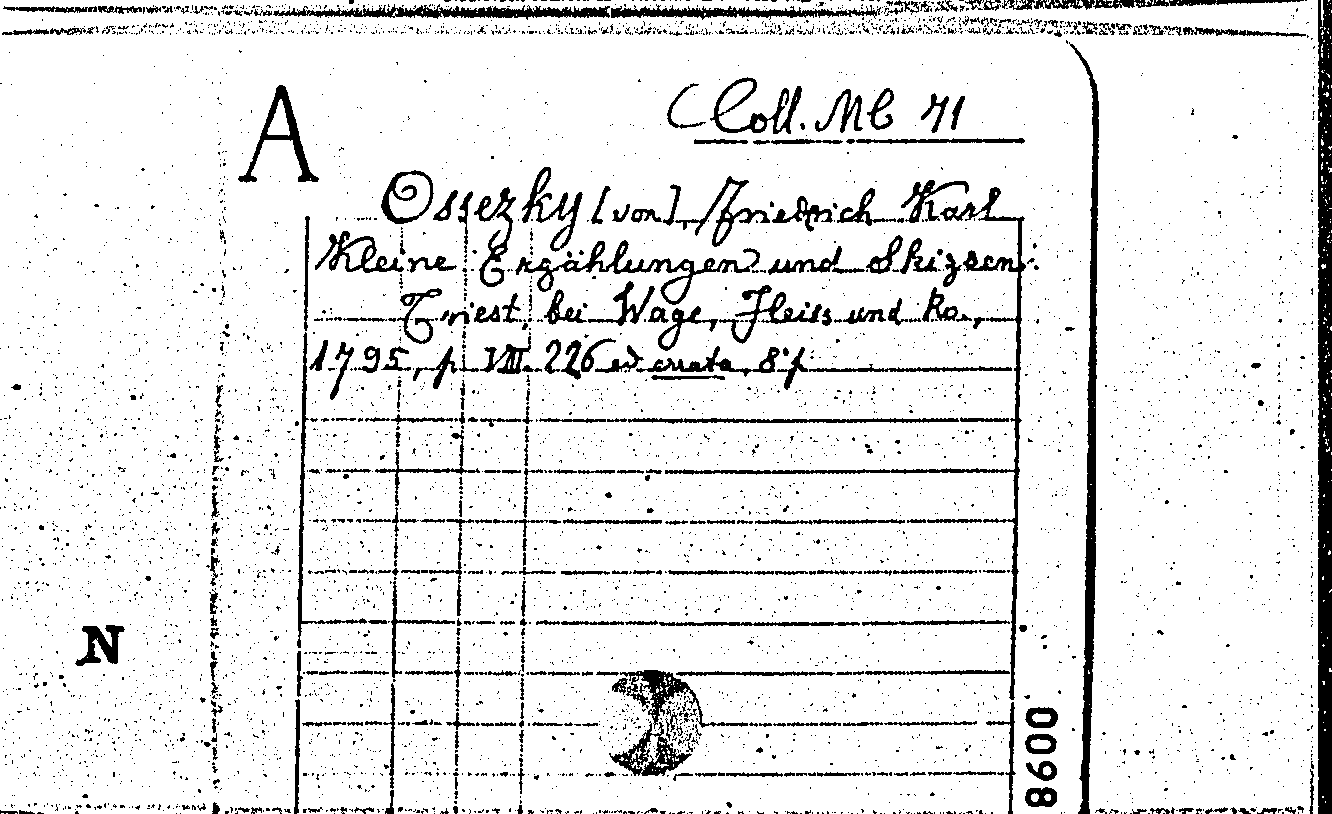 A
Coll. MC 71
Ossezky [von], Friedrich Karl
Kleine Erzählungen und Skizzen.
Triest, bei Wage, Fleiss und Ko.,
1795, p VIII. 226 ed errata, 8° p
N
8600